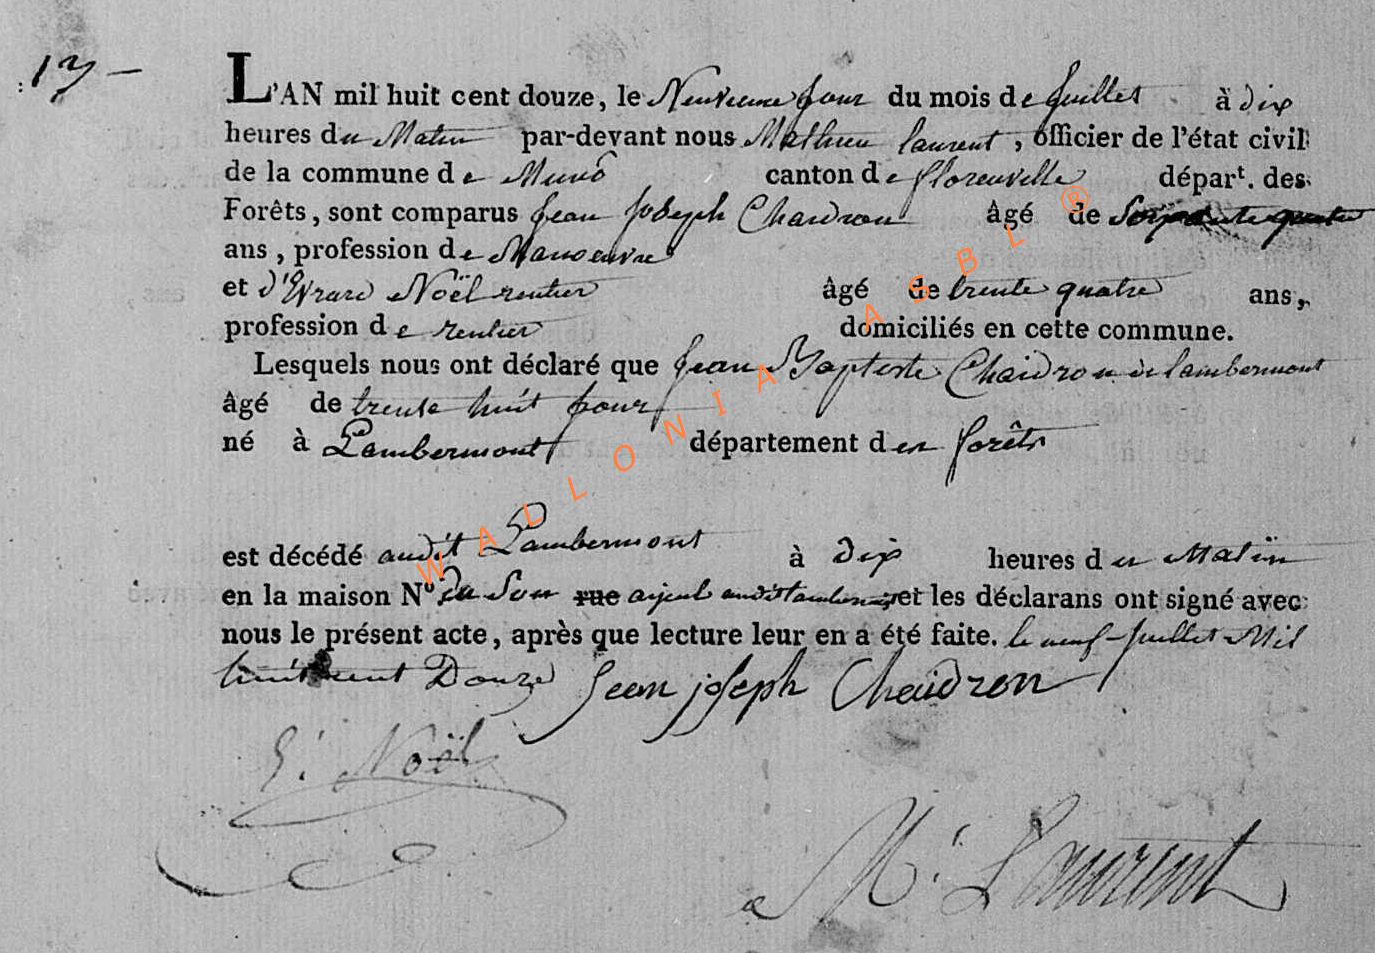 13 –
L'AN mil huit cent douze, le Neuvieme jour du mois de juillet à dix
heures du Matin par-devant nous Mathieu laurent, officier de l'état civil
de la commune de Muno canton de florenville départ. des
Forêts, sont comparus jean joseph Chaidron âgé de soixante quatre
ans, profession de Manoeuvre
et d'Evrard Noël rentier âgé de trente quatre ans,
profession de rentier domiciliés en cette commune.
Lesquels nous ont déclaré que jean Baptiste Chaidron de lambermont
âgé de trente huit jours
né à Lambermont département des forêts
est décédé audit Lambermont à dix heures du Matin
en la maison Nº de Son rue ayeul audit lambermont et les déclarans ont signé avec
nous le présent acte, après que lecture leur en a été faite. le neuf juillet Mil
huit cent Douze jean joseph Chaidron
E. Noël
M. Laurent
WALLONIA ASBL ®